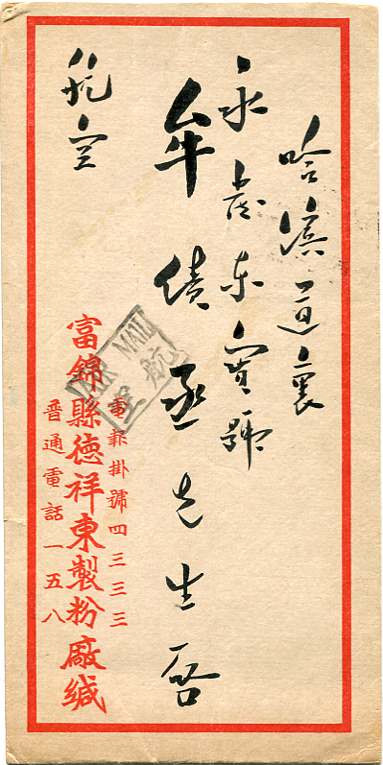 哈濱道裏
永东寶號
牟績丞先生启
航空
AIR MAIL
航空
電報掛號四三三三
富錦縣德祥東製粉廠緘
普通電話一五八